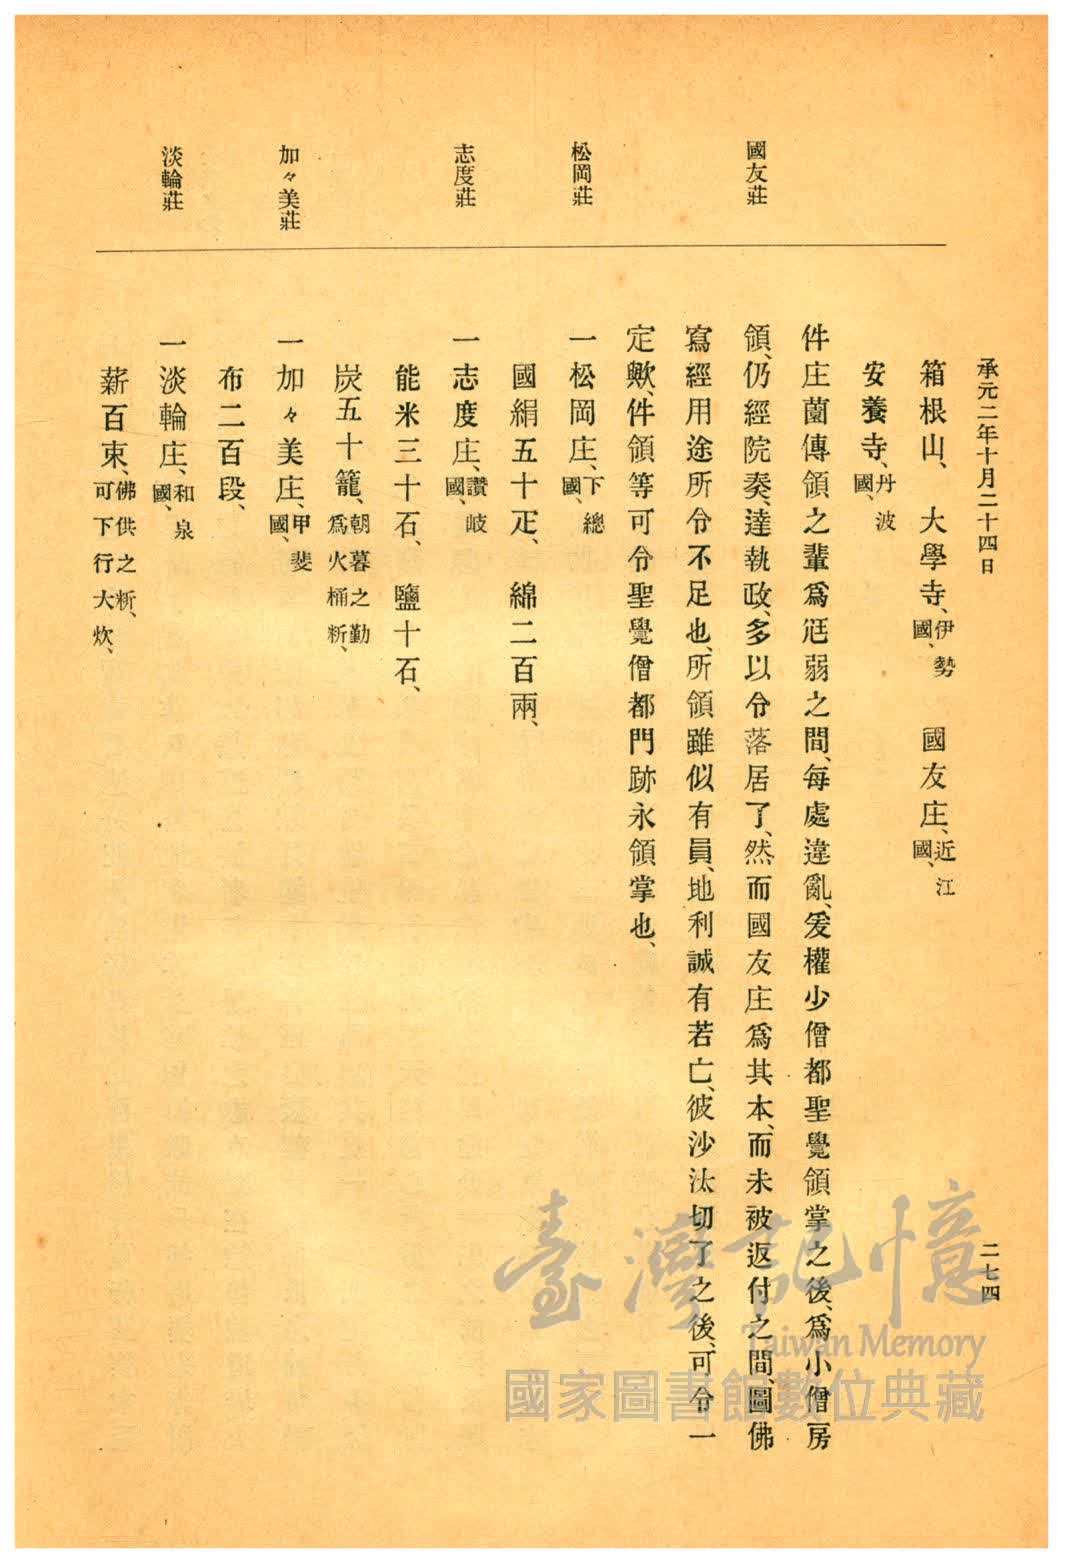 承元二年十月二十四日
二七四
箱根山、大學寺、伊勢國、國友庄、近江國、
安養寺、丹波國、
國友莊
件庄薗傳領之輩爲尩弱之間、每處違亂、爰權少僧都聖覺領掌之後、爲小僧房
領、仍經院奏、達執政、多以令落居了、然而國友庄爲其本、而未被返付之間、圖佛
寫經用途所令不足也、所領雖似有員、地利誠有若亡、彼沙汰切了之後、可令一
定歟、件領等可令聖覺僧都門跡永領掌也、
松岡莊
一松岡庄、下總國、
國絹五十疋、綿二百兩、
志度莊
一志度庄、讚岐國、
能米三十石、鹽十石、
炭五十籠、朝暮之勤爲火桶䉼、
加々美莊
一加々美庄、甲斐國、
布二百段、
淡輪莊
一淡輪庄、和泉國、
薪百束、佛供之䉼、可下行大炊、
臺灣記憶
Taiwan Memory
國家圖書館數位典藏